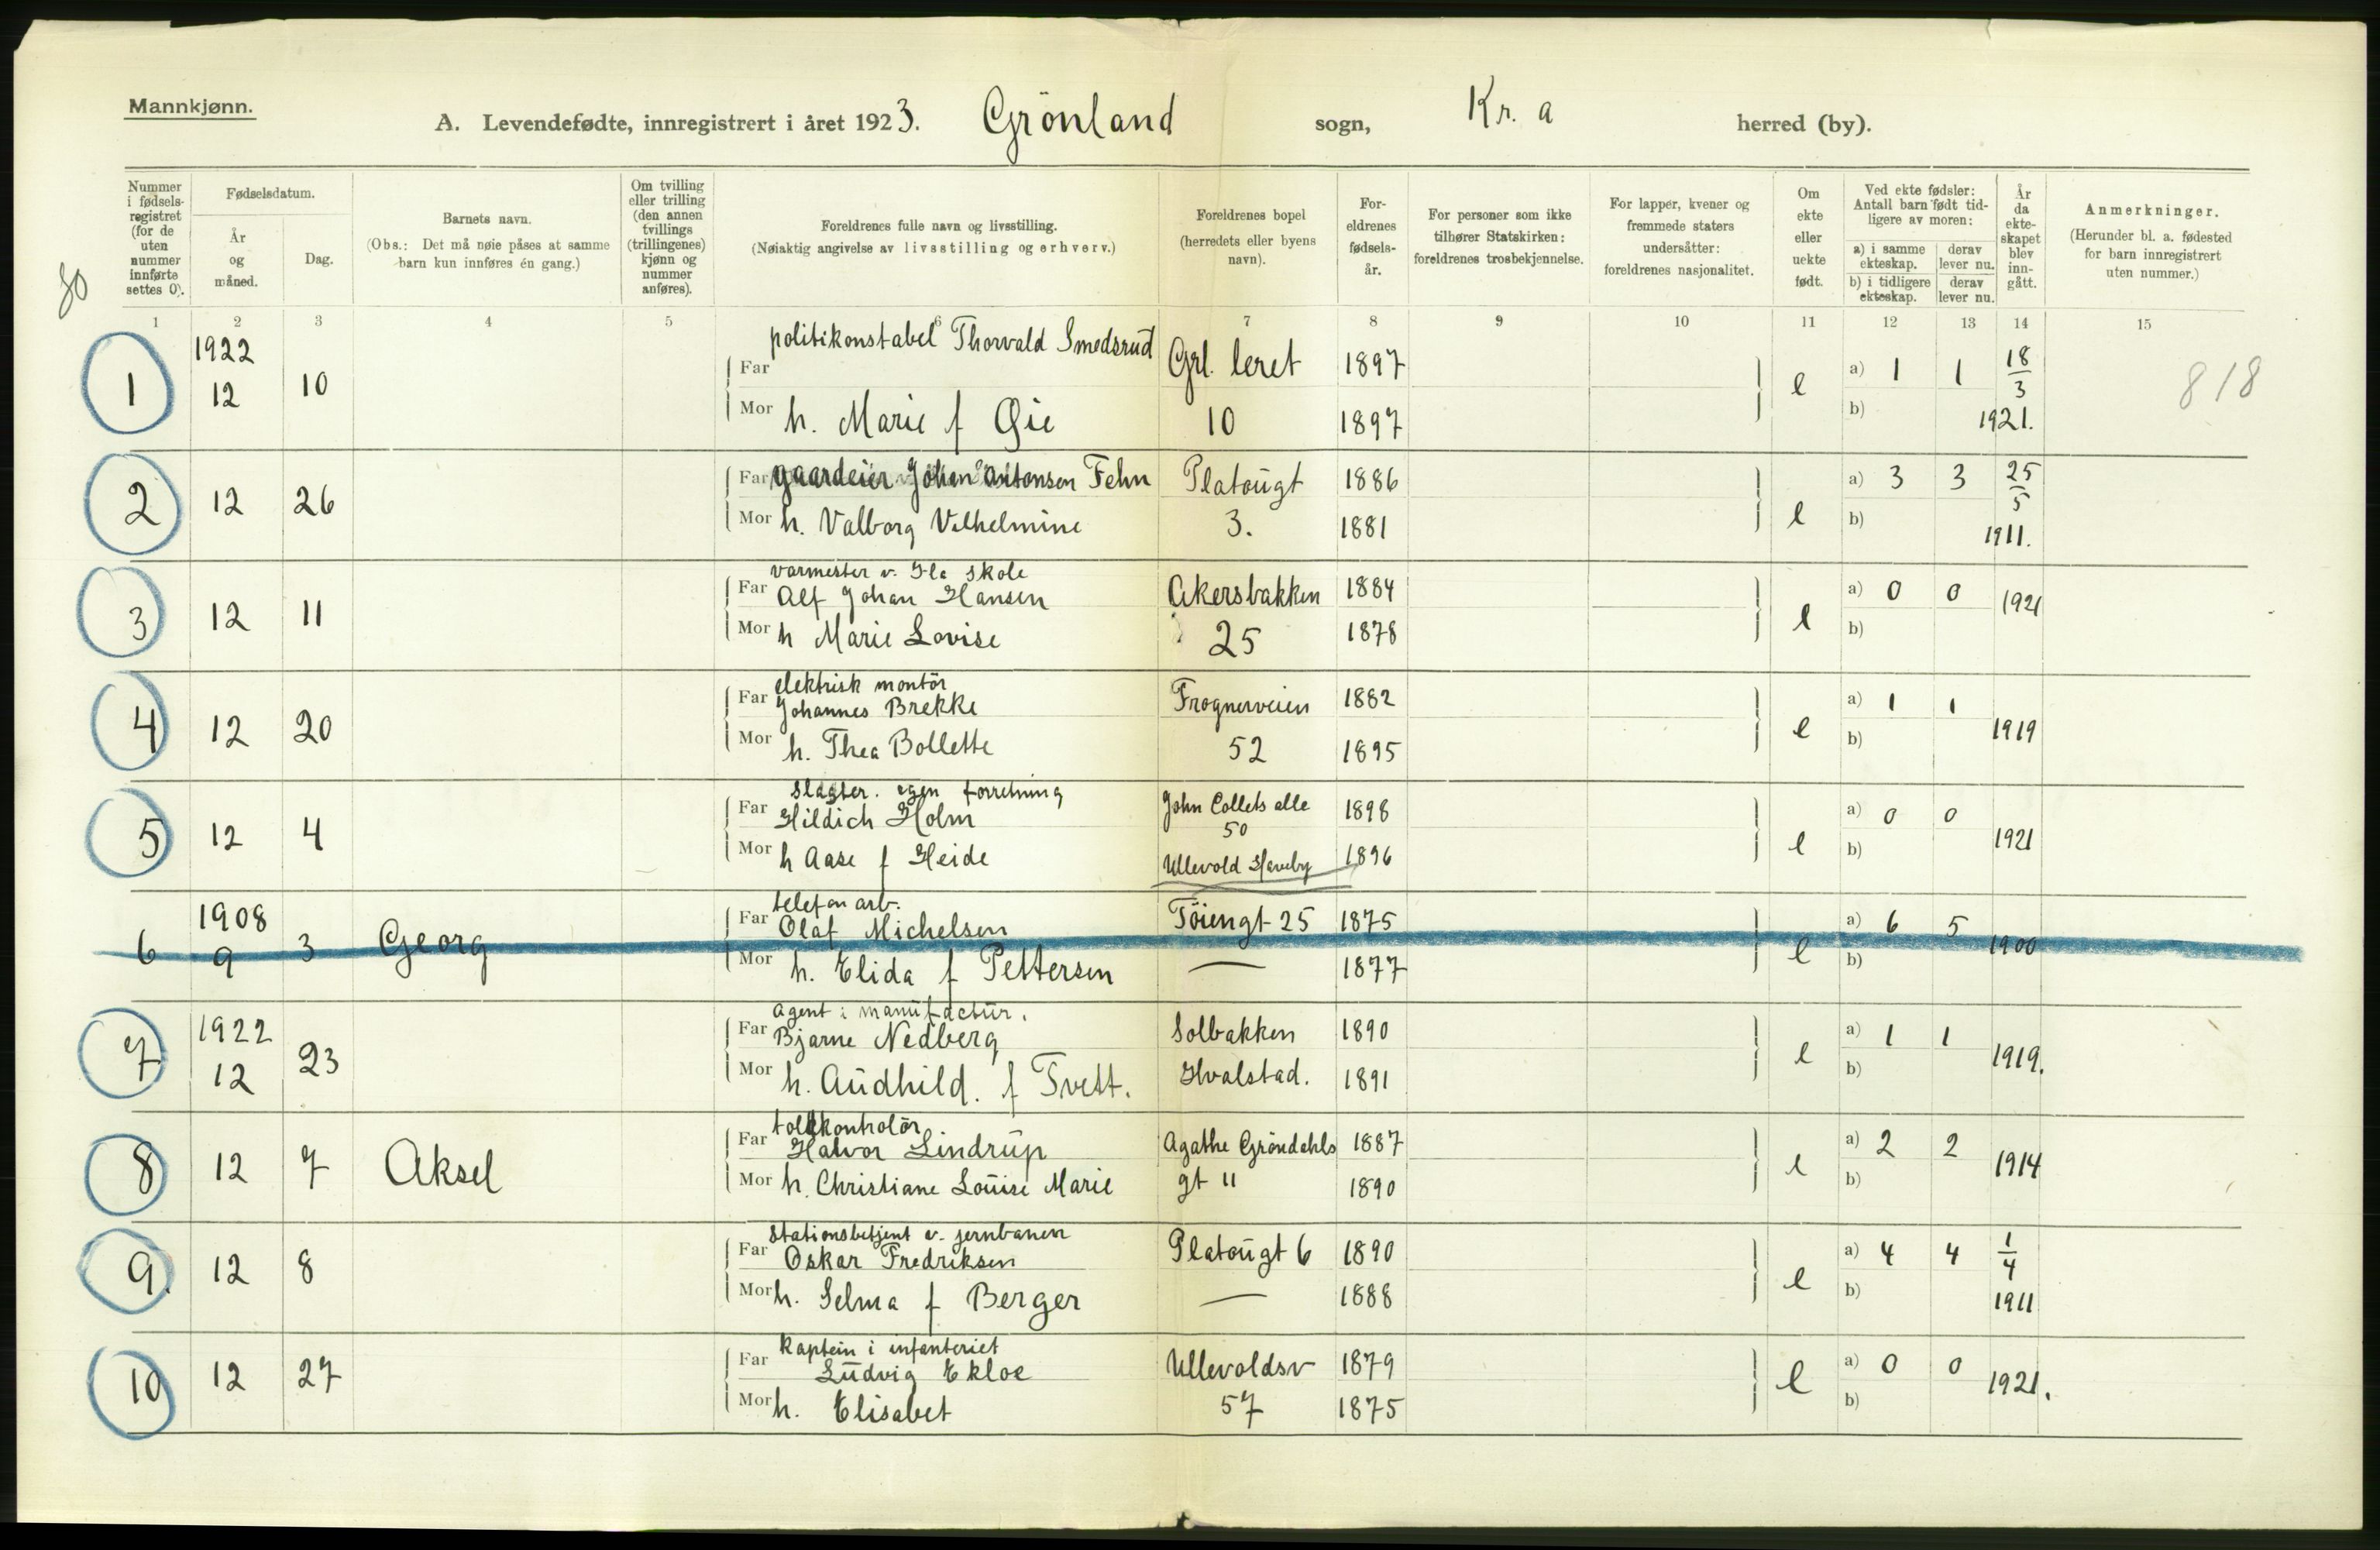 Mannkjønn.
A. Levendefødte, innregistrert i året 1923. Grönland sogn, Kr. a herred (by).
80
Nummer i fødsels-registret (for de uten nummer innførte settes 0).
Fødselsdatum.
År og måned.
Dag.
Barnets navn.
(Obs.: Det må nøie påses at samme barn kun innføres én gang.)
Om tvilling eller trilling (den annen tvillings (trillingenes) kjønn og nummer anføres).
Foreldrenes fulle navn og livsstilling.
(Nøiaktig angivelse av livsstilling og erhverv.)
Foreldrenes bopel (herredets eller byens navn).
For-eldrenes fødsels-år.
For personer som ikke tilhører Statskirken: foreldrenes trosbekjennelse.
For lapper, kvener og fremmede staters undersåtter: foreldrenes nasjonalitet.
Om ekte eller uekte født.
Ved ekte fødsler: Antall barn født tid-ligere av moren:
a) i samme ekteskap. derav lever nu.
b) i tidligere ekteskap. derav lever nu.
År da ekte-skapet blev inn-gått.
Anmerkninger.
(Herunder bl. a. fødested for barn innregistrert uten nummer.)
1 2 3 4 5 6 7 8 9 10 11 12 13 14 15
1922 politikonstabel Thorvald Smedsrud
1 12 10 Far Grl. leret 1897 e a) 1 1 18/3 818
Mor h. Marie f Øie 10 1897 b) 1921.
2 12 26 Far gaardeier Johan Antonsen Fehn Platougt 1886 e a) 3 3 25/5
Mor h. Valborg Vilhelmine 3. 1881 b) 1911.
varmester v. Ila skole
3 12 11 Far Alf Johan Hansen Akersbakken 1884 e a) 0 0 1921
Mor h Marie Lovise 25 1878 b)
elektrisk montör
4 12 20 Far Johannes Brekke Frognerveien 1882 e a) 1 1 1919
Mor h. Thea Bollette 52 1895 b)
slagter. egen forretning
5 12 4 Far Hildich Holm John Collets alle 50 1898 e a) 0 0 1921
Mor h Aase f Heide Ullevold Haveby 1896 b)
1908 telefon arb.
6 9 3 Georg Far Olaf Michelsen Töiengt 25 1875 e a) 6 5 1900
Mor h. Elida f Pettersen — 1877 b)
1922 Agent i manufactur.
7 12 23 Far Bjarne Nedberg Solbakken 1890 e a) 1 1 1919.
Mor h. Audhild. f Tvett. Hvalstad. 1891 b)
tollkontrolör
8 12 7 Aksel Far Halvor Lindrup Agathe Gröndahls 1887 e a) 2 2 1914
Mor h. Christiane Louise Marie gt 11 1890 b)
Stationsbetjent v. jernbanen
9. 12 8 Far Oskar Fredriksen Platougt 6 1890 e a) 4 4 1/4
Mor h. Selma f Berger — 1888 b) 1911
Kaptein i infanteriet
10 12 27 Far Ludvig Ekloe Ullevoldsv 1879 e a) 0 0 1921.
Mor h. Elisabet 57 1875 b)